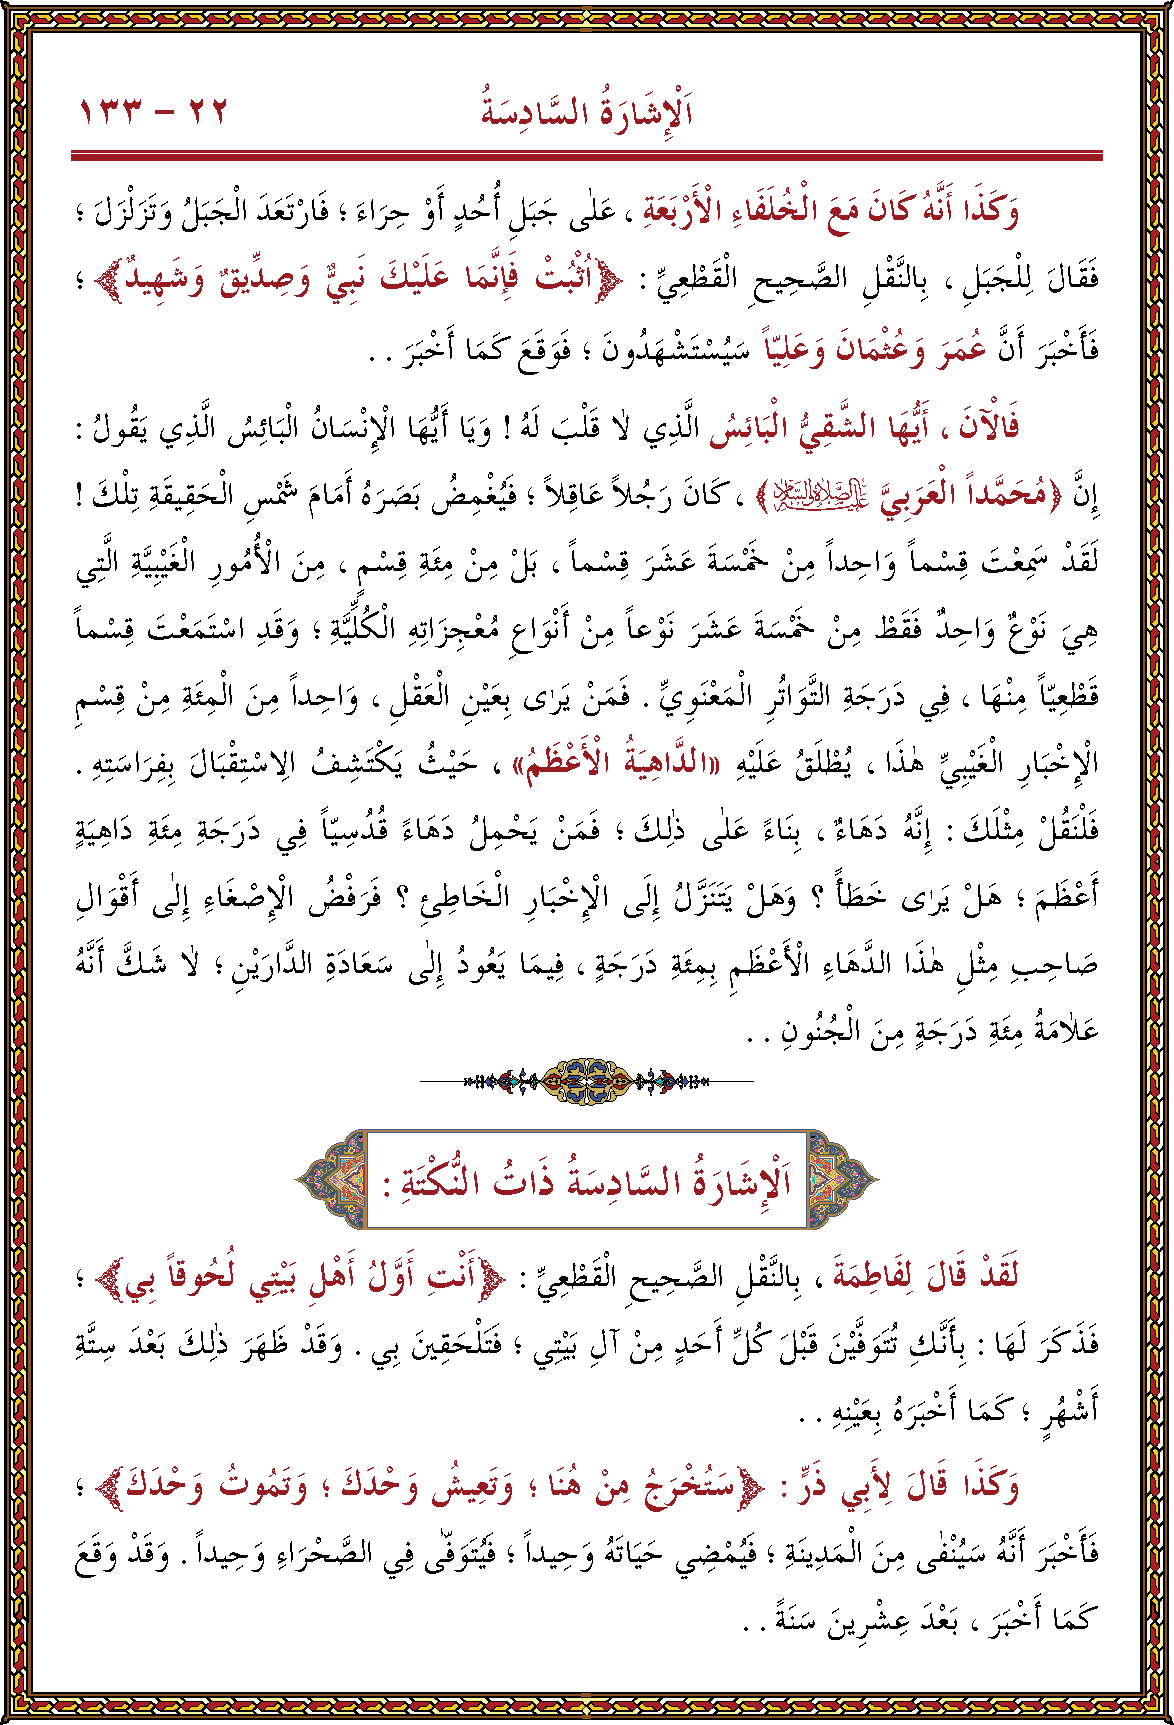 اَلْإِشَارَةُ السَّادِسَةُ
٢٢ – ١٣٣
وَكَذَا أَنَّهُ كَانَ مَعَ الْخُلَفَاءِ الْأَرْبَعَةِ ، عَلٰى جَبَلِ أُحُدٍ أَوْ حِرَاءَ ؛ فَارْتَعَدَ الْجَبَلُ وَتَزَلْزَلَ ؛
فَقَالَ لِلْجَبَلِ ، بِالنَّقْلِ الصَّحِيحِ الْقَطْعِيِّ : ﴿أُثْبُتْ فَإِنَّمَا عَلَيْكَ نَبِيٌّ وَصِدِّيقٌ وَشَهِيدٌ﴾ ؛
فَأَخْبَرَ أَنَّ عُمَرَ وَعُثْمَانَ وَعَلِيّاً سَيُسْتَشْهَدُونَ ؛ فَوَقَعَ كَمَا أَخْبَرَ . .
فَالْاٰنَ ، أَيُّهَا الشَّقِيُّ الْبَائِسُ الَّذِي لَا قَلْبَ لَهُ ! وَيَا أَيُّهَا الْإِنْسَانُ الْبَائِسُ الَّذِي يَقُولُ :
إِنَّ ﴿مُحَمَّداً الْعَرَبِيَّ عَلَيْهِ الصَّلَاةُ وَالسَّلَامُ﴾ ، كَانَ رَجُلاً عَاقِلاً ؛ فَيُغْمِضُ بَصَرَهُ أَمَامَ شَمْسِ الْحَقِيقَةِ تِلْكَ !
لَقَدْ سَمِعْتَ قِسْماً وَاحِداً مِنْ خَمْسَةَ عَشَرَ قِسْماً ، بَلْ مِنْ مِئَةِ قِسْمٍ ، مِنَ الْأُمُورِ الْغَيْبِيَّةِ الَّتِي
هِيَ نَوْعٌ وَاحِدٌ فَقَطْ مِنْ خَمْسَةَ عَشَرَ نَوْعاً مِنْ أَنْوَاعِ مُعْجِزَاتِهِ الْكُلِّيَّةِ ؛ وَقَدِ اسْتَمَعْتَ قِسْماً
قَطْعِيّاً مِنْهَا ، فِي دَرَجَةِ التَّوَاتُرِ الْمَعْنَوِيِّ . فَمَنْ يَرٰى بِعَيْنِ الْعَقْلِ ، وَاحِداً مِنَ الْمِئَةِ مِنْ قِسْمِ
الْإِخْبَارِ الْغَيْبِيِّ هٰذَا ، يُطْلَقُ عَلَيْهِ «الدَّاهِيَةُ الْأَعْظَمُ» ، حَيْثُ يَكْتَشِفُ الِاسْتِقْبَالَ بِفِرَاسَتِهِ .
فَلْنَقُلْ مِثْلَكَ : إِنَّهُ دَهَاءٌ ، بِنَاءً عَلٰى ذٰلِكَ ؛ فَمَنْ يَحْمِلُ دَهَاءً قُدُسِيّاً فِي دَرَجَةِ مِئَةِ دَاهِيَةٍ
أَعْظَمَ ؛ هَلْ يَرٰى خَطَأً ؟ وَهَلْ يَتَنَزَّلُ إِلَى الْإِخْبَارِ الْخَاطِئِ ؟ فَرَفْضُ الْإِصْغَاءِ إِلٰى أَقْوَالِ
صَاحِبِ مِثْلِ هٰذَا الدَّهَاءِ الْأَعْظَمِ بِمِئَةِ دَرَجَةٍ ، فِيمَا يَعُودُ إِلٰى سَعَادَةِ الدَّارَيْنِ ؛ لَا شَكَّ أَنَّهُ
عَلَامَةُ مِئَةِ دَرَجَةٍ مِنَ الْجُنُونِ . .
اَلْإِشَارَةُ السَّادِسَةُ ذَاتُ النُّكْتَةِ :
لَقَدْ قَالَ لِفَاطِمَةَ ، بِالنَّقْلِ الصَّحِيحِ الْقَطْعِيِّ : ﴿أَنْتِ أَوَّلُ أَهْلِ بَيْتِي لُحُوقاً بِي﴾ ؛
فَذَكَرَ لَهَا : بِأَنَّكِ تُتَوَفَّيْنَ قَبْلَ كُلِّ أَحَدٍ مِنْ آلِ بَيْتِي ؛ فَتَلْحَقِينَ بِي . وَقَدْ ظَهَرَ ذٰلِكَ بَعْدَ سِتَّةِ
أَشْهُرٍ ؛ كَمَا أَخْبَرَهُ بِعَيْنِهِ . .
وَكَذَا قَالَ لِأَبِي ذَرٍّ : ﴿سَتُخْرَجُ مِنْ هُنَا ؛ وَتَعِيشُ وَحْدَكَ ؛ وَتَمُوتُ وَحْدَكَ﴾ ؛
فَأَخْبَرَ أَنَّهُ سَيُنْفٰى مِنَ الْمَدِينَةِ ؛ فَيُمْضِي حَيَاتَهُ وَحِيداً ؛ فَيُتَوَفّٰى فِي الصَّحْرَاءِ وَحِيداً . وَقَدْ وَقَعَ
كَمَا أَخْبَرَ ، بَعْدَ عِشْرِينَ سَنَةً . .